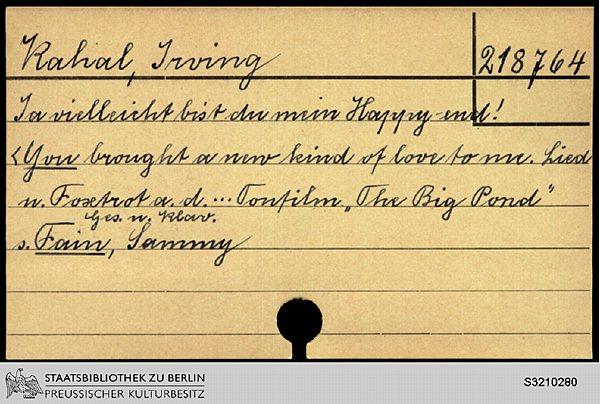 Kahal, Irving
218764
Ja vielleicht bist du mein Happy-end!
<You brought a new kind of love to me. Lied
u. Foxtrot a. d. ... Tonfilm „The Big Pond"
Ges. u. Klav.
s. Fain, Sammy
STAATSBIBLIOTHEK ZU BERLIN
PREUSSISCHER KULTURBESITZ
S3210280